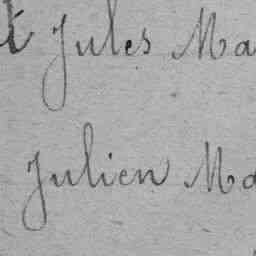 Jules Ma
Julien Ma